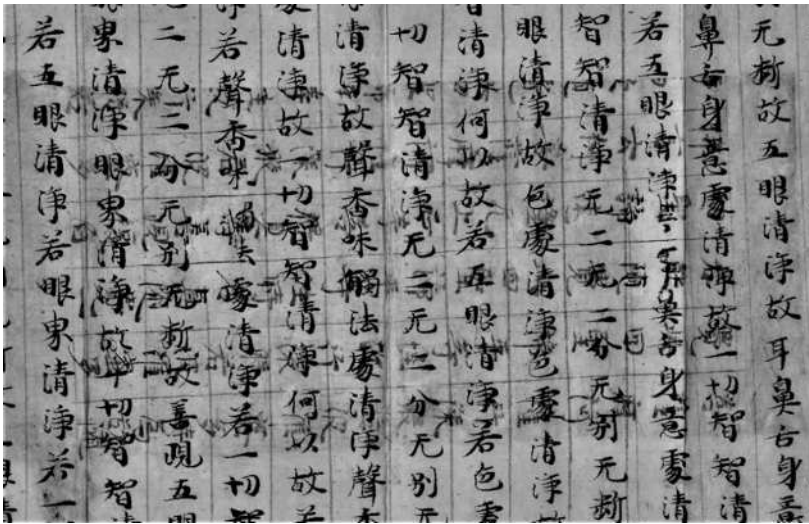 无断故五眼清淨故耳鼻舌身意
鼻舌身意處清淨故一切智智清
若五眼清淨若耳鼻舌身意處清
智智清淨无二无二分无別无断
眼清淨故色處清淨色處清淨故
清淨何以故若五眼清淨若色處
切智智清淨无二无二分无別无
清淨故聲香味觸法處清淨聲香
清淨故一切智智清淨何以故若
若聲香味觸法處清淨若一切智
二无二分无別无断故善現五眼
眼界清淨眼界清淨故一切智智清
若五眼清淨若眼界清淨若一